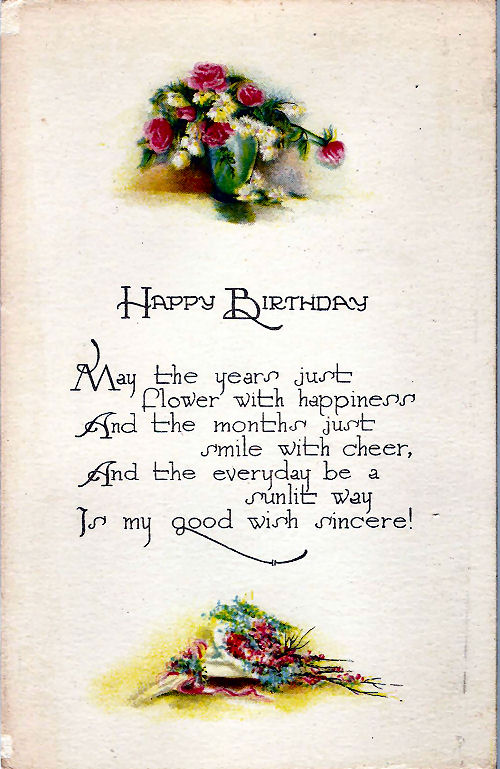 Happy Birthday
May the years just
flower with happiness
And the months just
smile with cheer,
And the everyday be a
sunlit way
Is my good wish sincere!